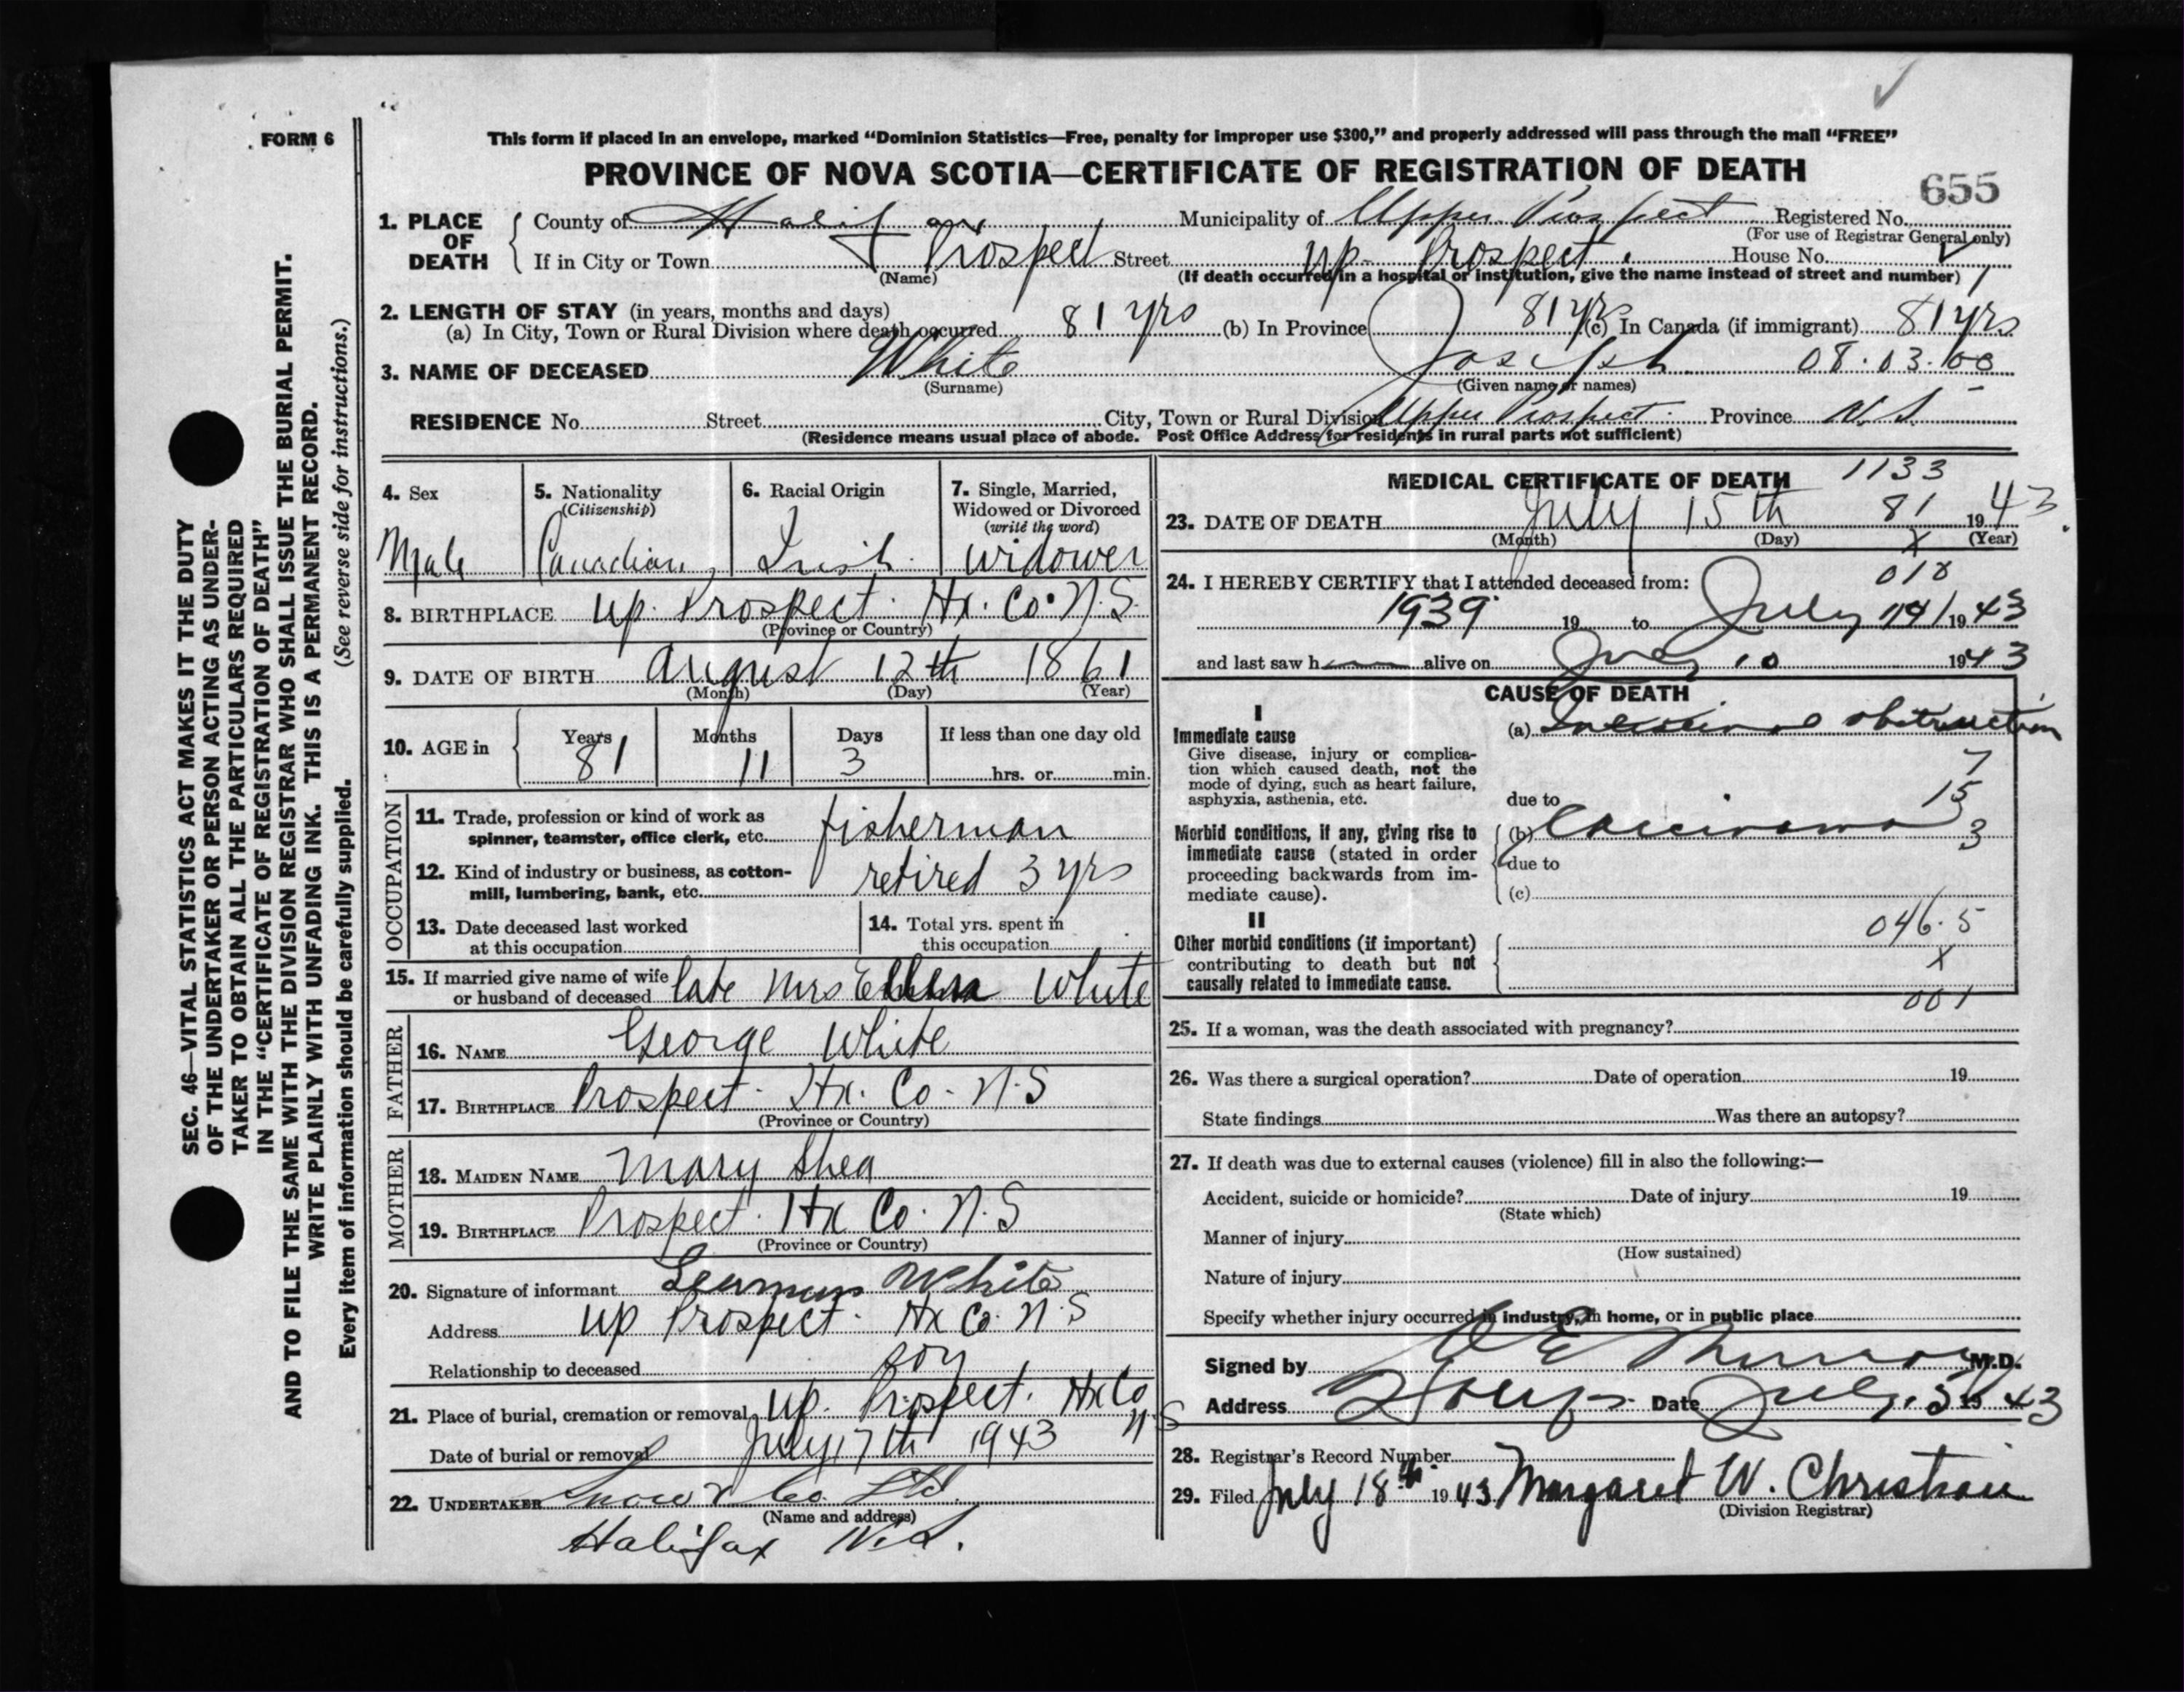 FORM 6
This form if placed in an envelope, marked “Dominion Statistics—Free, penalty for improper use $300,” and properly addressed will pass through the mail “FREE”
PROVINCE OF NOVA SCOTIA—CERTIFICATE OF REGISTRATION OF DEATH
655
1. PLACE OF DEATH { County of Halifax Municipality of Upper Prospect Registered No.
(For use of Registrar General only)
If in City or Town Prospect Street up Prospect. House No.
(Name) (If death occurred in a hospital or institution, give the name instead of street and number)
2. LENGTH OF STAY (in years, months and days)
(a) In City, Town or Rural Division where death occurred 81 yrs (b) In Province 81 yrs (c) In Canada (if immigrant) 81 yrs
3. NAME OF DECEASED White Joseph 08.03.
(Surname) (Given name or names)
RESIDENCE No. Street City, Town or Rural Division Upper Prospect. Province N.S.
(Residence means usual place of abode. Post Office Address for residents in rural parts not sufficient)
4. Sex Male
5. Nationality (Citizenship) Canadian
6. Racial Origin Irish
7. Single, Married, Widowed or Divorced (write the word) widower
8. BIRTHPLACE up. Prospect. Hx. Co. N.S.
(Province or Country)
9. DATE OF BIRTH August 12th 1861
(Month) (Day) (Year)
10. AGE in { Years 81 Months 11 Days 3 If less than one day old
hrs. or min.
OCCUPATION
11. Trade, profession or kind of work as
spinner, teamster, office clerk, etc. fisherman
12. Kind of industry or business, as cotton-
mill, lumbering, bank, etc. retired 3 yrs
13. Date deceased last worked
at this occupation
14. Total yrs. spent in
this occupation
15. If married give name of wife
or husband of deceased late Mrs Ellen White
FATHER
16. NAME George White
17. BIRTHPLACE Prospect. Hx. Co. N.S
(Province or Country)
MOTHER
18. MAIDEN NAME Mary Shea
19. BIRTHPLACE Prospect. Hx Co. N.S
(Province or Country)
20. Signature of informant White
Address up Prospect. Hx Co. N.S
Relationship to deceased son
21. Place of burial, cremation or removal up. Prospect. Hx Co N.S
Date of burial or removal July 17th 1943
22. UNDERTAKER Snow & Co. Ltd.
(Name and address)
Halifax N.S.
MEDICAL CERTIFICATE OF DEATH 1133
23. DATE OF DEATH July 15th 81 1943
(Month) (Day) X (Year)
24. I HEREBY CERTIFY that I attended deceased from: 018
1939 19 to July 1943
and last saw h alive on July 10 1943
CAUSE OF DEATH
I
Immediate cause (a) Intestinal obstruction
Give disease, injury or complica-
tion which caused death, not the
mode of dying, such as heart failure,
asphyxia, asthenia, etc.
7
15
3
due to
Morbid conditions, if any, giving rise to
immediate cause (stated in order
proceeding backwards from im-
mediate cause).
(b) Carcinoma
due to
(c)
II
Other morbid conditions (if important)
contributing to death but not
causally related to immediate cause.
046.5
X
001
25. If a woman, was the death associated with pregnancy?
26. Was there a surgical operation? Date of operation 19
State findings Was there an autopsy?
27. If death was due to external causes (violence) fill in also the following:—
Accident, suicide or homicide? Date of injury 19
(State which)
Manner of injury
(How sustained)
Nature of injury
Specify whether injury occurred in industry, in home, or in public place
Signed by M.D.
Address Date July 43
28. Registrar's Record Number
29. Filed July 18th 1943 Margaret W. Christian
(Division Registrar)
SEC. 46—VITAL STATISTICS ACT MAKES IT THE DUTY
OF THE UNDERTAKER OR PERSON ACTING AS UNDER-
TAKER TO OBTAIN ALL THE PARTICULARS REQUIRED
IN THE “CERTIFICATE OF REGISTRATION OF DEATH”
AND TO FILE THE SAME WITH THE DIVISION REGISTRAR WHO SHALL ISSUE THE BURIAL PERMIT.
WRITE PLAINLY WITH UNFADING INK. THIS IS A PERMANENT RECORD.
Every item of information should be carefully supplied. (See reverse side for instructions.)